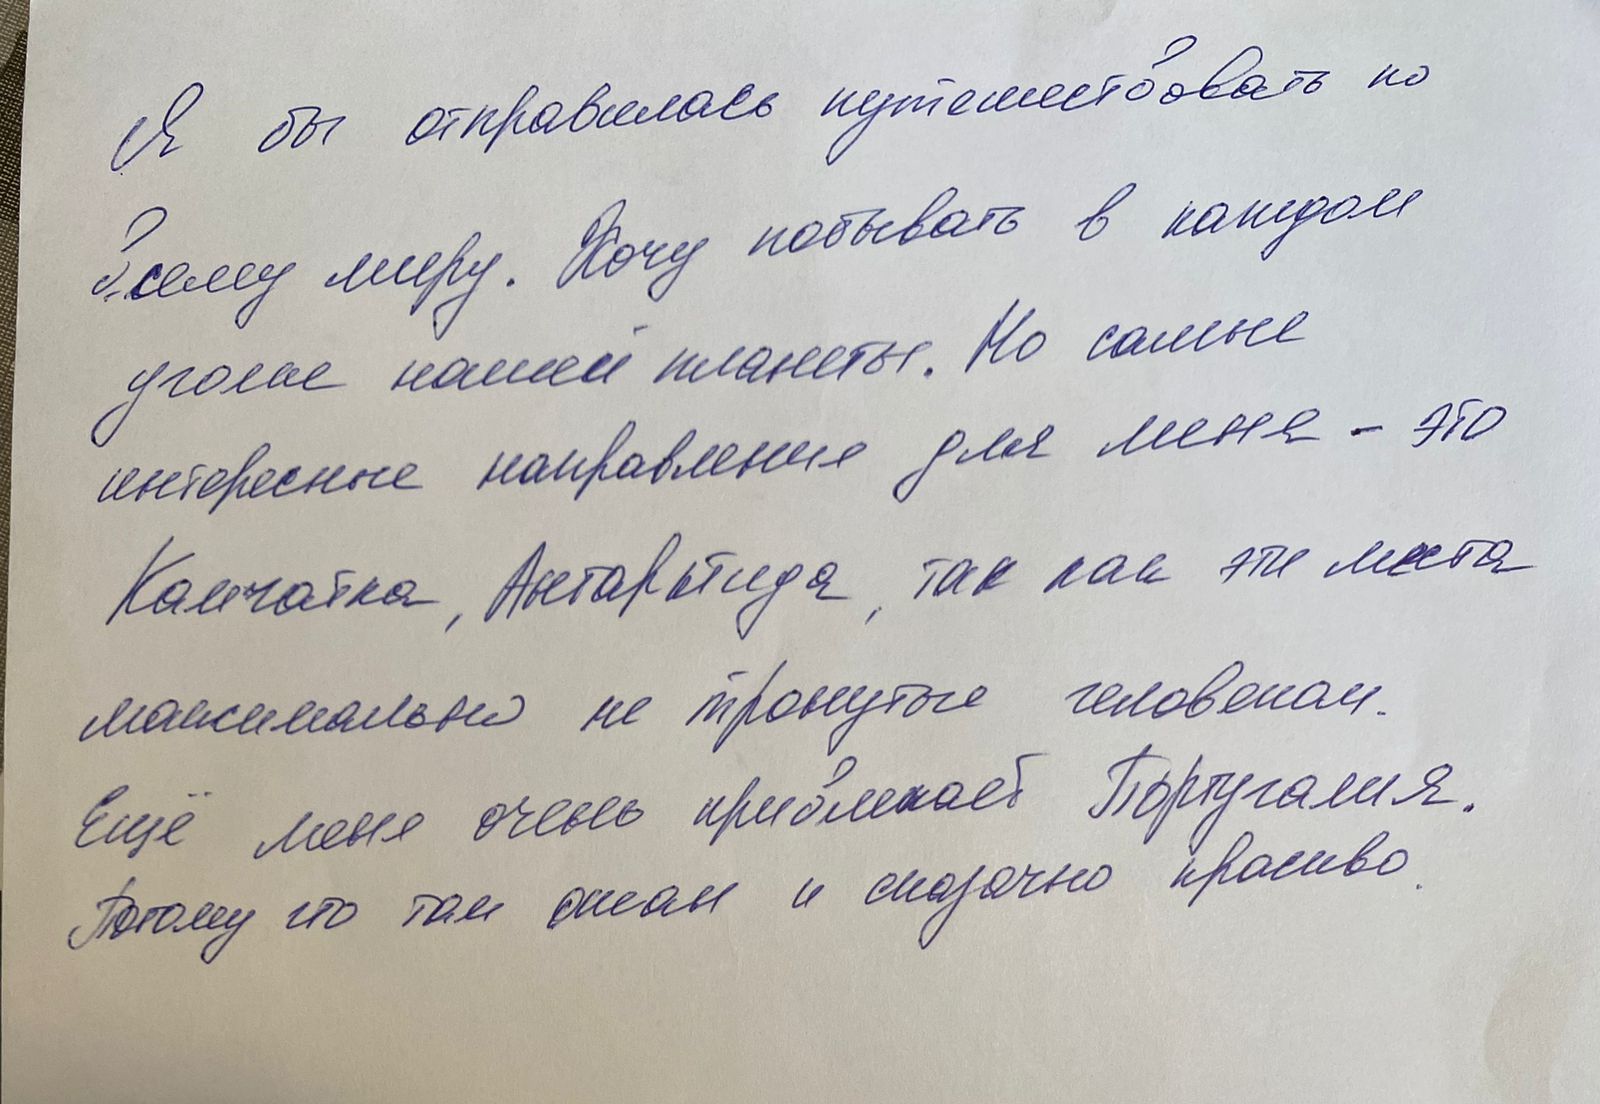 Я бы отправилась путешествовать по
всему миру. Хочу побывать в каждом
уголке нашей планеты. Но самые
интересные направления для меня - это
Камчатка, Антарктида, так как эти места
максимально не тронутые человеком.
Ещё меня очень привлекает Португалия.
Потому что там океан и сказочно красиво.